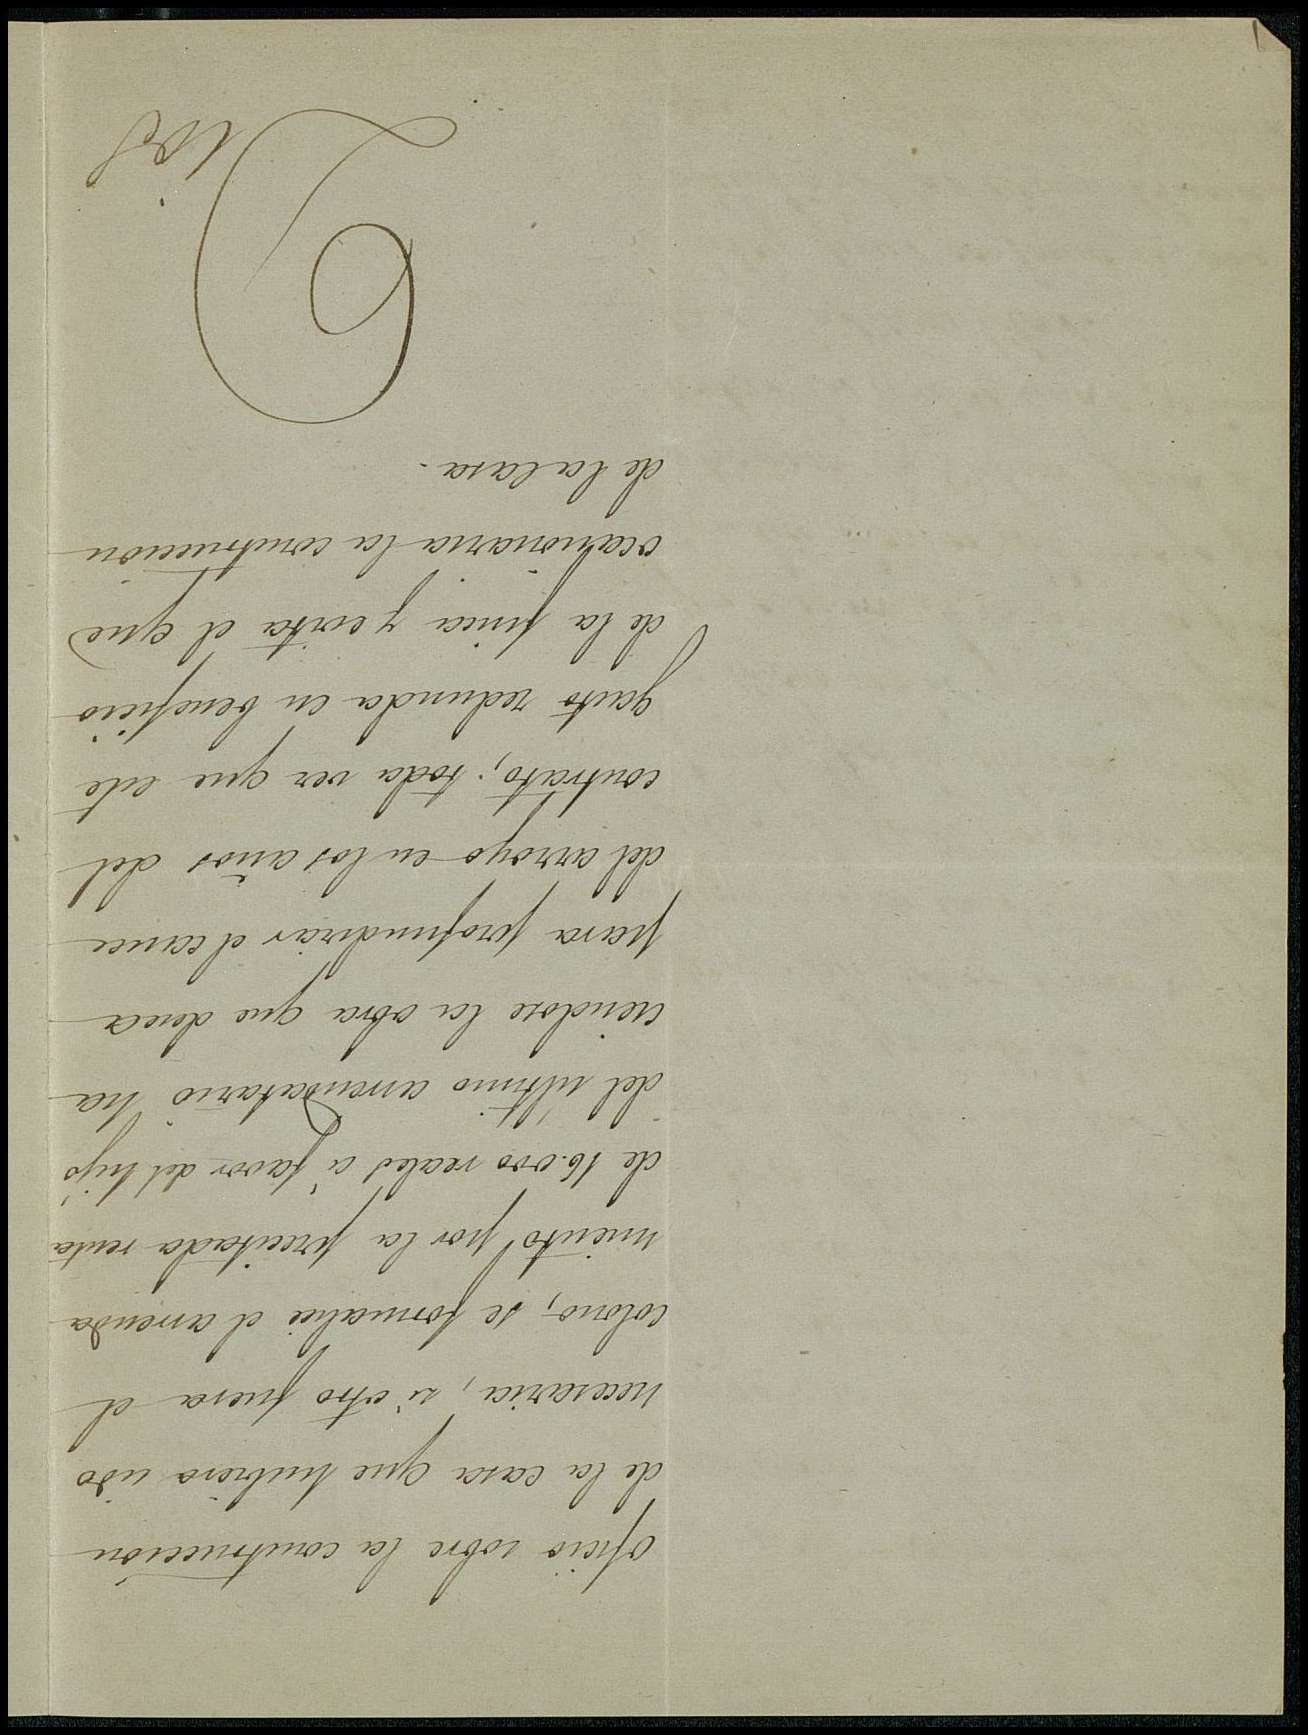 oficio sobre la construccion
de la casa que hubiera sido
necesaria, si otro fuera el
colono, se formalice el arrenda
miento por la precitada renta
de 16.000 reales á favor del hijo
del ultimo arrendatario ha
ciendose la obra que desea
para profundizar el cauce
del arroyo en los años del
contrato; toda vez que este
gasto redunda en beneficio
de la finca y evita el que
ocasionaria la construccion
de la casa.